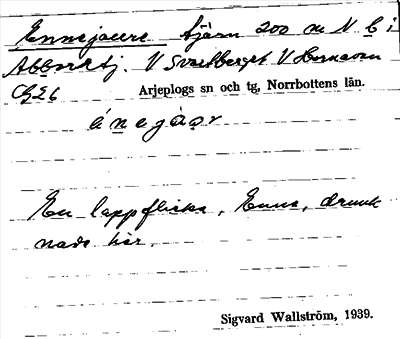 Ennejaure tjärn 200 m N b i
Abborrtj. V Svartberget V Hornavan
Arjeplogs sn och tg, Norrbottens län.
énejàor
En lappflicka, Enna, drunk
nade här.
Sigvard Wallström, 1939.